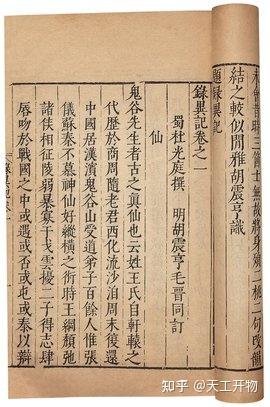 未曾昔時三箇士無故將身殞二桃二句改韻
結之較似閒雅胡震亨識
題錄異記
錄異記卷之一
蜀杜光庭撰 明胡震亨毛晉同訂
仙
鬼谷先生者古之真仙也云姓王氏自軒轅之
代歷於商周隨老君西化流沙洎周末復還
中國居漢濱鬼谷山受道弟子百餘人惟張
儀蘇秦不慕神仙好縱橫之術時王綱頹弛
諸侯相征陵弱暴寡干戈雲擾二子得志肆
唇吻於戰國之中或遇或否或屯或泰以辯
知乎 @天工开物